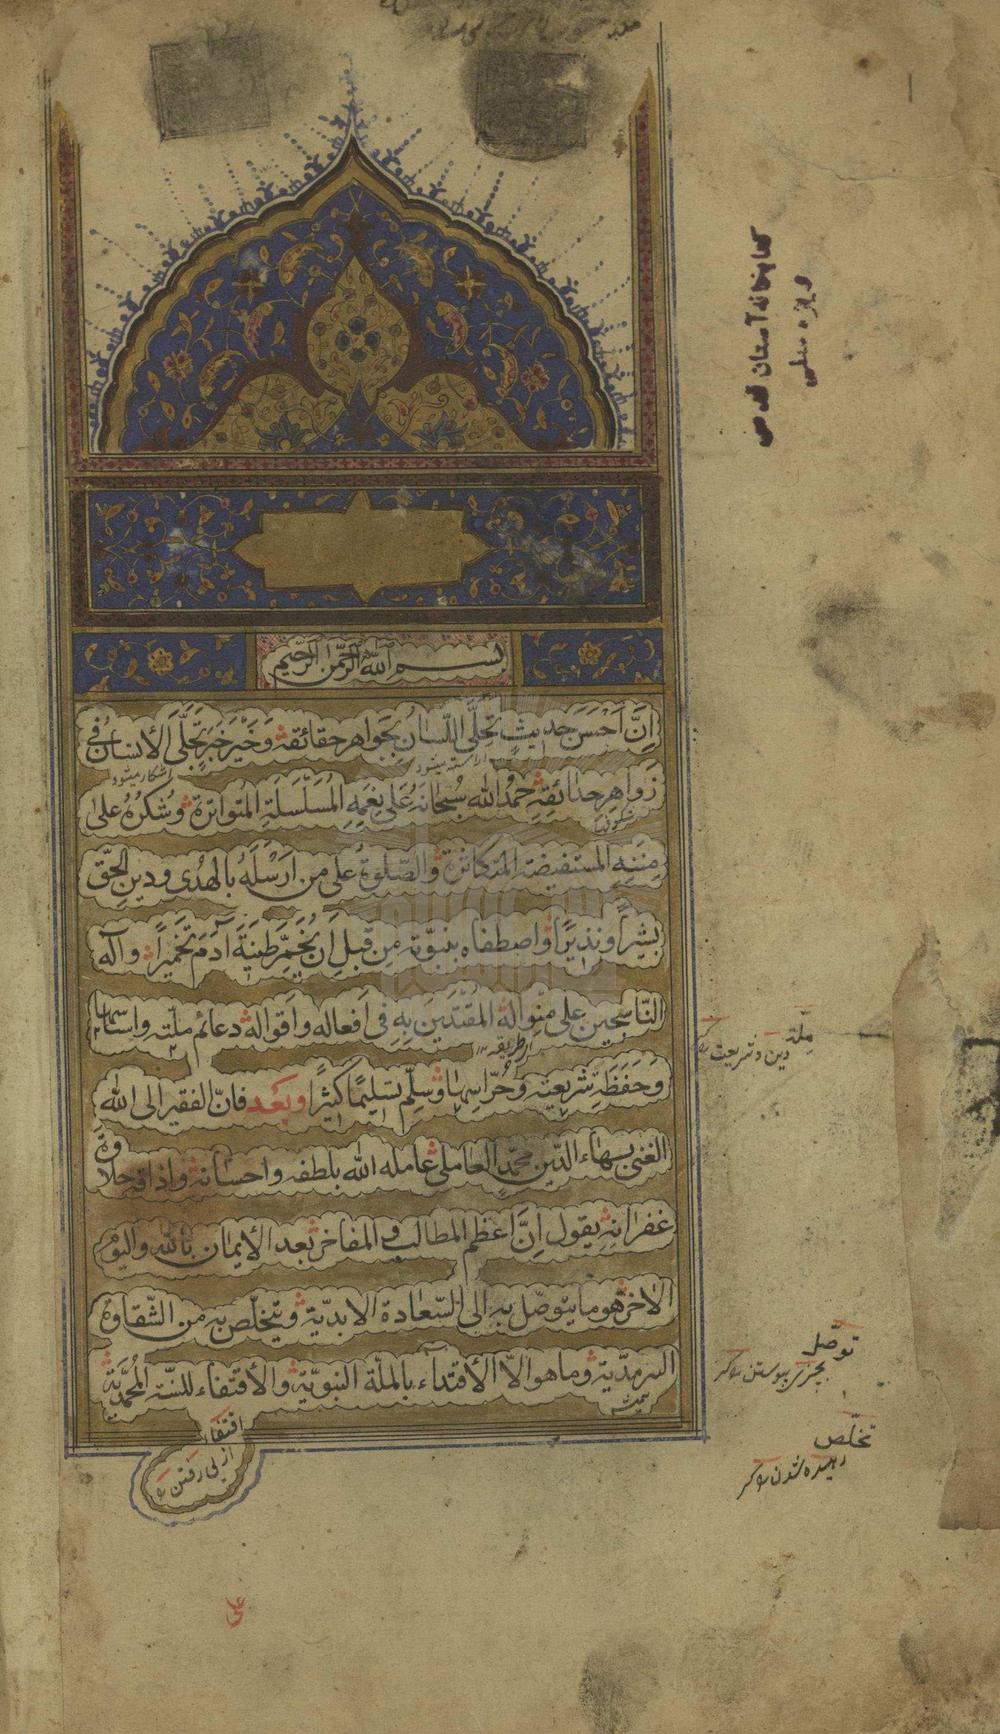 بسم الله الرحمن الرحيم
اِنَّ اَحْسَنَ حديثٍ تحلّى اللّسان بجواهر حقائقه وخَيْرَ خَبَرٍ تَجَلّى الأنسان في
آراسته ميشود
آشكار ميشود
زَواهر حدائقه حمدُ الله سُبحانه على نِعَمِهِ المُسَلْسَلَةِ المُتواترة وشكرُهُ على
مِنَنِهِ المستفيضة المتكاثرة والصّلوةُ على من اَرْسَلَهُ بالهُدى ودين الحقّ
بشيراً ونذيراً واصطفاه بنبوّته مِن قبل اَن يُخَمِّرَ طينةَ آدَمَ تخميراً وآله
النّاسجين على منواله المُقْتَدِين بِهِ في اَفعاله واَقواله دعائم ملّته واساسها
طريقه
وَحَفَظَةِ شريعته وحُرّاسِها وسلّم تسليمًا كثيرًا وبعد فانّ الفقير الى الله
الغنى بهاء الدّين محمّد العاملى عامله الله بلطفه واحسانه واذاقه حلاوة
غفرانه يقول اِنَّ اعظم المطالب والمفاخر بعد الأيمان بالله واليوم
الاخر هو ما يتوصّل به الى السّعادة الابديّة ويتخلّص به من الشّقاوة
السرمديّة وما هو الاّ الأقتداء بالملّة النبويّة والأقتفاء للسنّة المحمّديّة
اقتفا
از پى رفتن
كتابخانه آستان قدس
ملّة
دين وشريعت
توصّل
بچيزى پيوستن
تخلّص
رهيده شدن